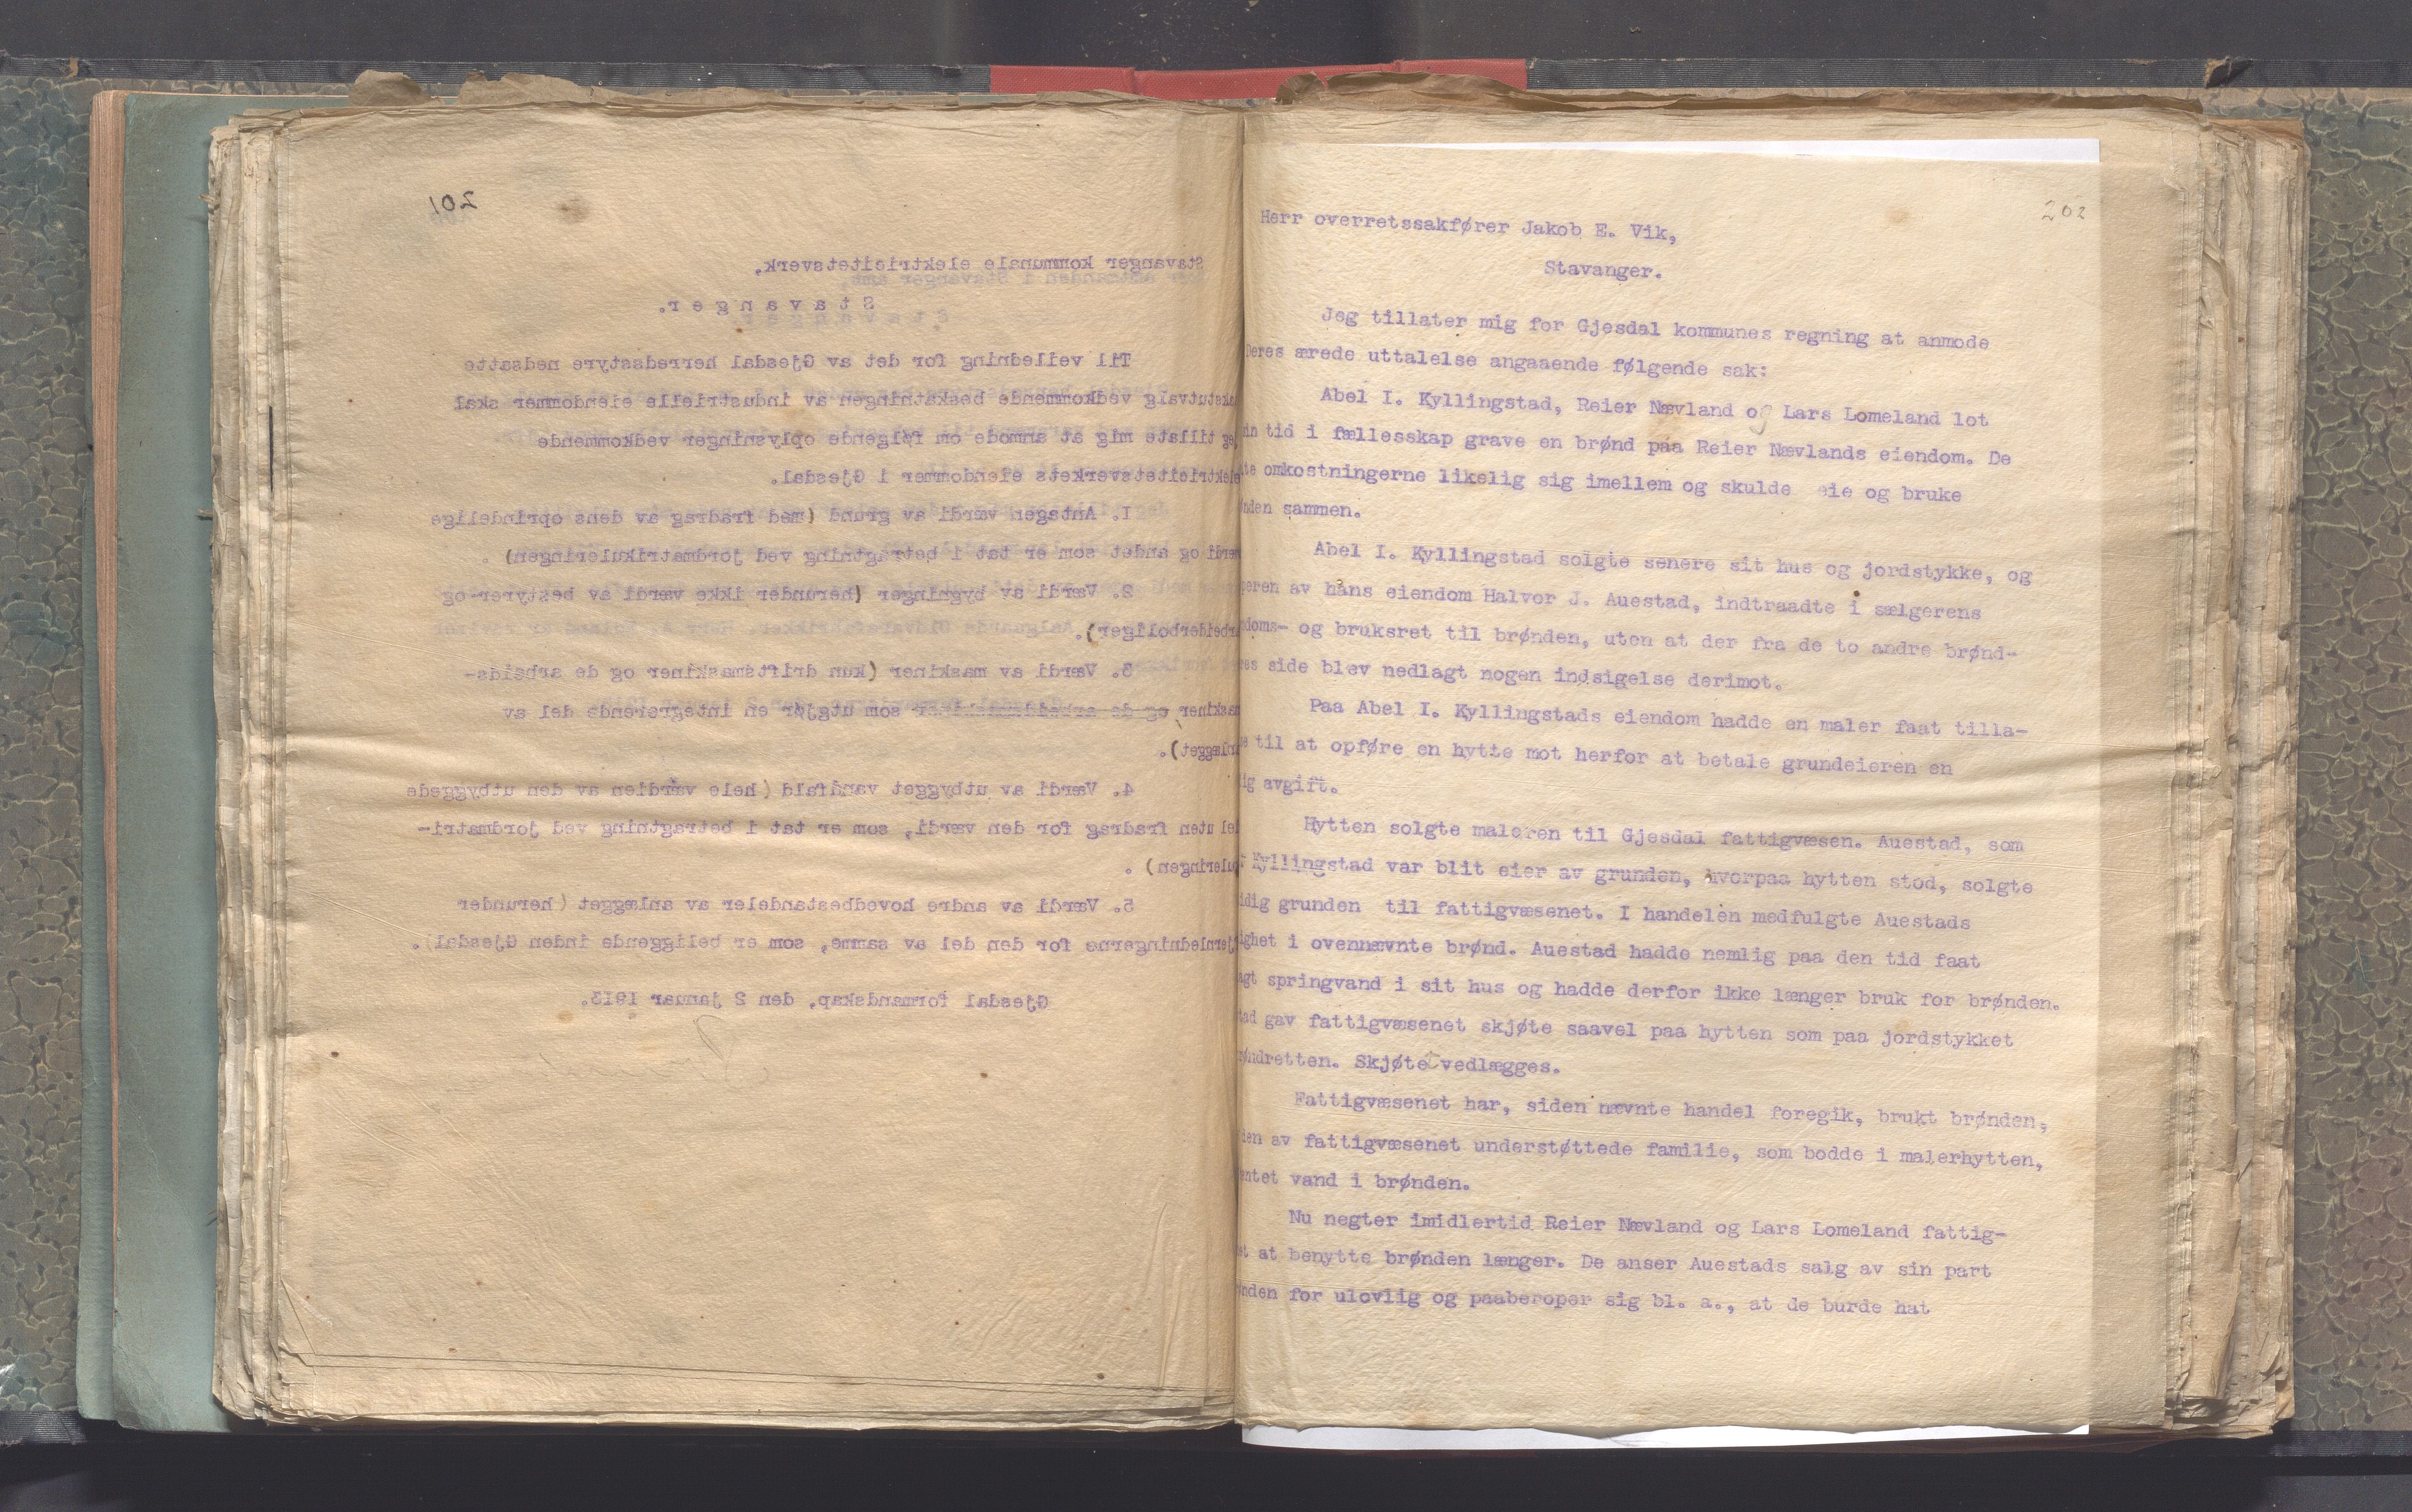 201
Stavanger kommunale elektricitetsverk.
Stavanger.
Til veiledning for det av Gjesdal herredsstyre nedsatte
vedkommende beskatningen av industrielle eiendommer skal
tillate mig at anmode om følgende oplysninger vedkommende
elektricitetsverkets eiendommer i Gjesdal.
1. Antagen værdi av grund (med fradrag av dens oprindelige
og andet som er tat i betragtning ved jordmatrikuleringen).
2. Værdi av bygninger (herunder ikke værdi av bestyrer-og
arbeiderboliger).
3. Værdi av maskiner (kun driftsmaskiner og de arbeids-
maskiner og de arbeidsmaskiner som utgjør en integrerende del av
anlægget).
4. Værdi av utbygget vandfald (hele værdien av den utbyggede
del uten fradrag for den værdi, som er tat i betragtning ved jordmatri-
kuleringen).
5. Værdi av andre hovedbestandeler av anlægget (herunder
fjernledningerne for den del av samme, som er beliggende inden Gjesdal).
Gjesdal formandskap, den 2 januar 1913.
202
Herr overretssakfører Jakob E. Vik,
Stavanger.
Jeg tillater mig for Gjesdal kommunes regning at anmode
Deres ærede uttalelse angaaende følgende sak:
Abel I. Kyllingstad, Reier Nævland og Lars Lomeland lot
in tid i fællesskap grave en brønd paa Reier Nævlands eiendom. De
te omkostningerne likelig sig imellem og skulde eie og bruke
nden sammen.
Abel I. Kyllingstad solgte senere sit hus og jordstykke, og
eren av hans eiendom Halvor J. Auestad, indtraadte i sælgerens
doms- og bruksret til brønden, uten at der fra de to andre brønd-
es side blev nedlagt nogen indsigelse derimot.
Paa Abel I. Kyllingstads eiendom hadde en maler faat tilla-
e til at opføre en hytte mot herfor at betale grundeieren en
ig avgift.
Hytten solgte maleren til Gjesdal fattigvæsen. Auestad, som
r Kyllingstad var blit eier av grunden, hvorpaa hytten stod, solgte
idig grunden til fattigvæsenet. I handelen medfulgte Auestads
ighet i ovennævnte brønd. Auestad hadde nemlig paa den tid faat
agt springvand i sit hus og hadde derfor ikke længer bruk for brønden.
tad gav fattigvæsenet skjøte saavel paa hytten som paa jordstykket
røndretten. Skjøtet vedlægges.
Fattigvæsenet har, siden nævnte handel foregik, brukt brønden,
den av fattigvæsenet understøttede familie, som bodde i malerhytten,
entet vand i brønden.
Nu negter imidlertid Reier Nævland og Lars Lomeland fattig-
et at benytte brønden længer. De anser Auestads salg av sin part
ønden for ulovlig og paaberoper sig bl. a., at de burde hat